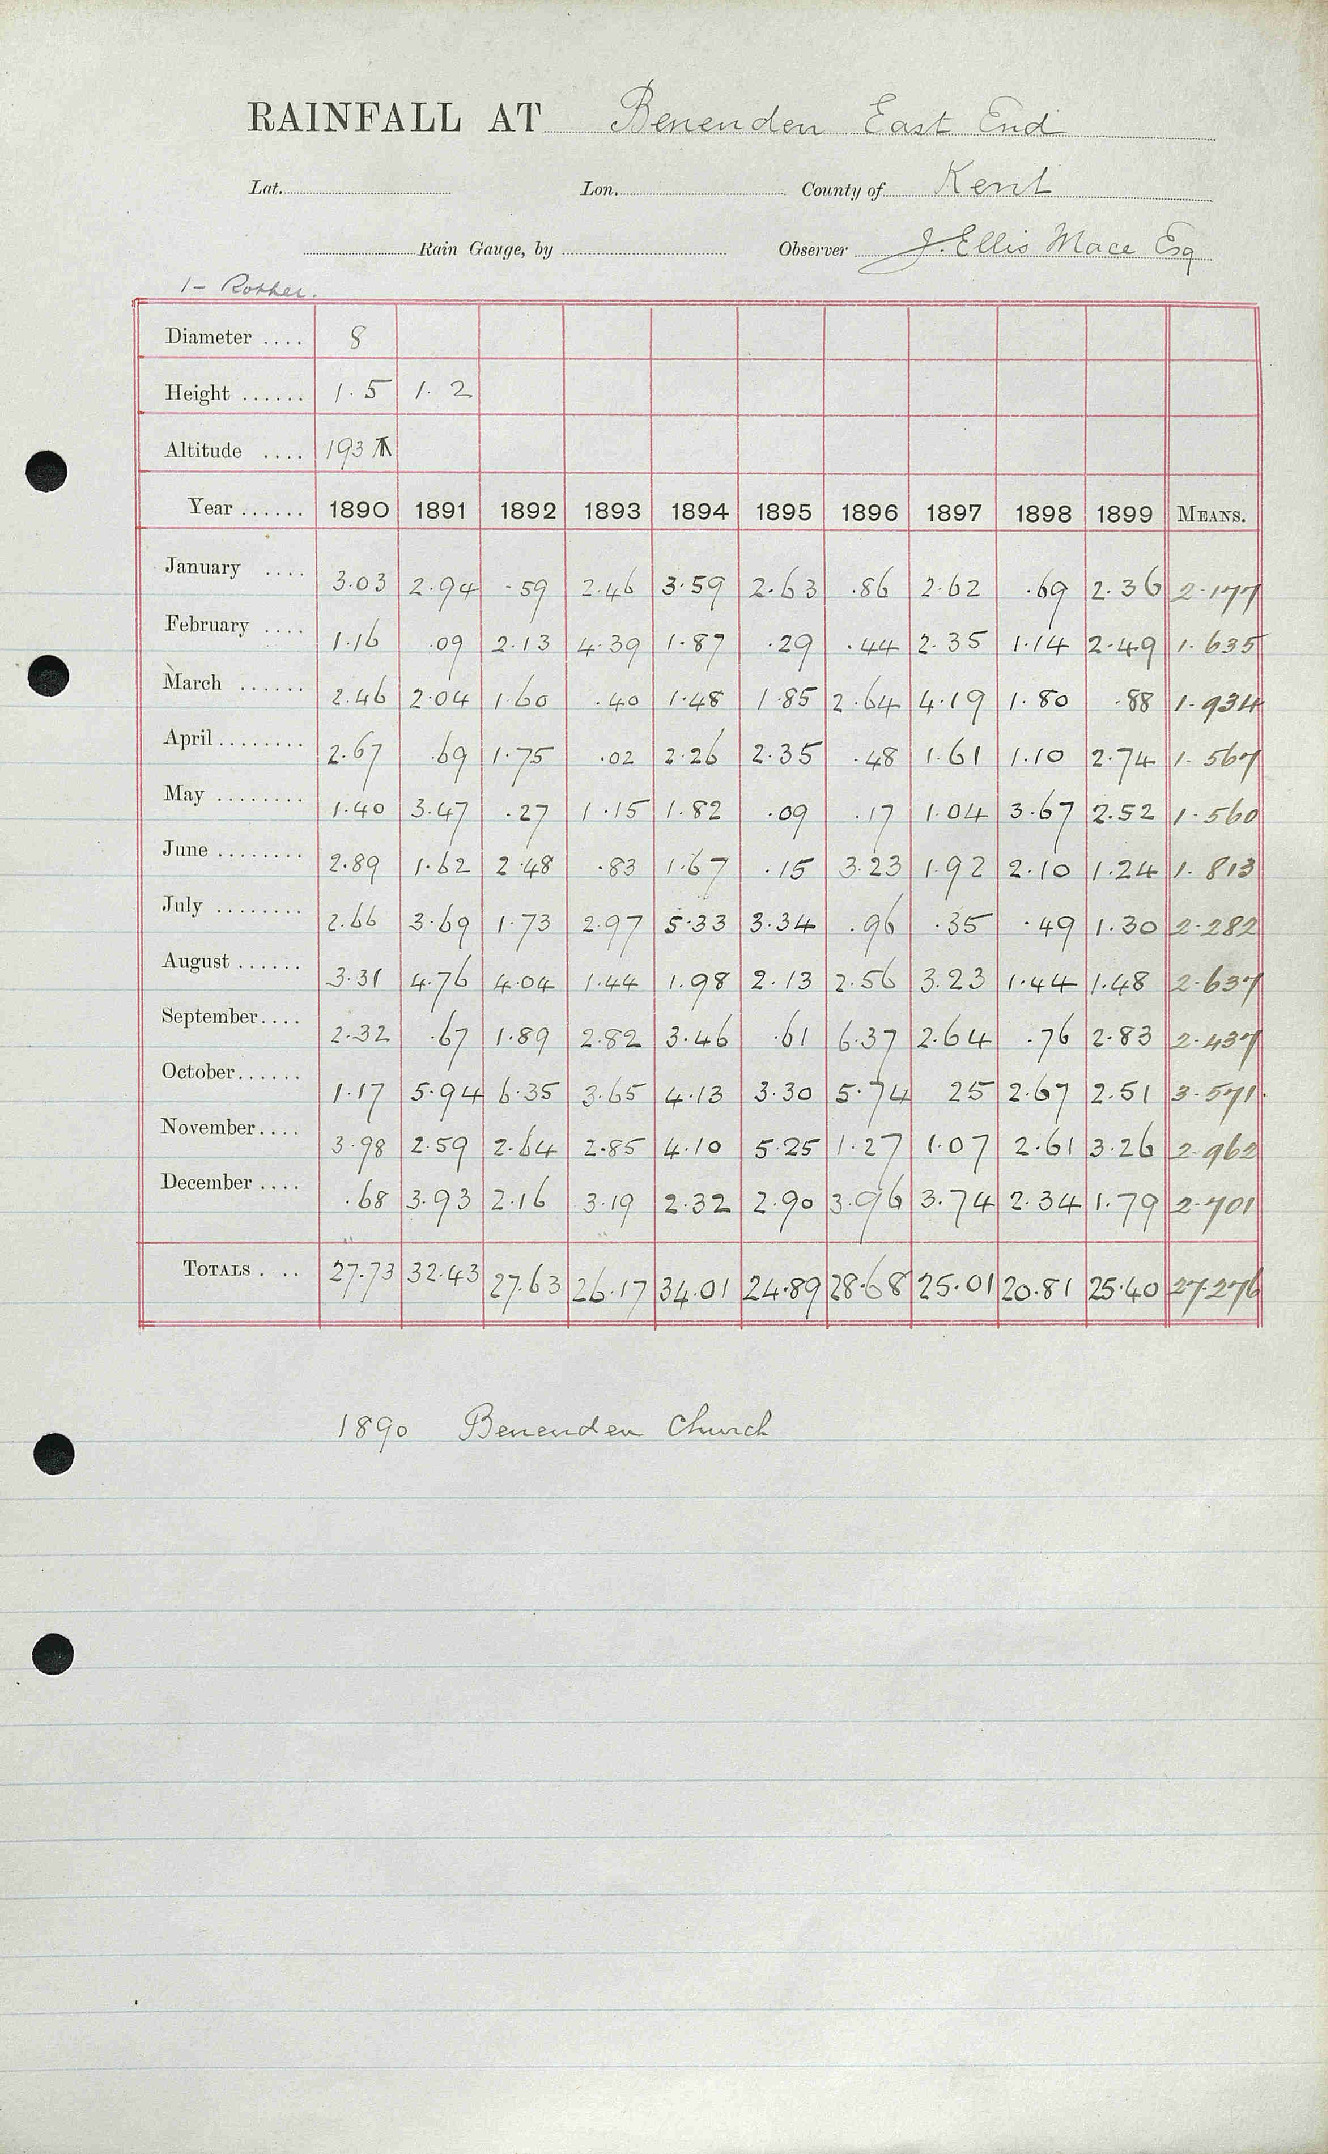 RAINFALL AT Benenden East End
Lat. Lon. County of Kent
Rain Gauge, by Observer J. Ellis Mace Esq
1 - Rother.
Diameter .... 8
Height ...... 1.5 1.2
Altitude .... 193
Year ...... 1890 1891 1892 1893 1894 1895 1896 1897 1898 1899 MEANS.
January .... 3.03 2.94 .59 2.46 3.59 2.63 .86 2.62 .69 2.36 2.177
February .... 1.16 .09 2.13 4.39 1.87 .29 .44 2.35 1.14 2.49 1.635
March ...... 2.46 2.04 1.60 .40 1.48 1.85 2.64 4.19 1.80 .88 1.934
April ........ 2.67 .69 1.75 .02 2.26 2.35 .48 1.61 1.10 2.74 1.567
May ........ 1.40 3.47 .27 1.15 1.82 .09 .17 1.04 3.67 2.52 1.560
June ........ 2.89 1.62 2.48 .83 1.67 .15 3.23 1.92 2.10 1.24 1.813
July ........ 2.66 3.69 1.73 2.97 5.33 3.34 .96 .35 .49 1.30 2.282
August ...... 3.31 4.76 4.04 1.44 1.98 2.13 2.56 3.23 1.44 1.48 2.637
September .... 2.32 .67 1.89 2.82 3.46 .61 6.37 2.64 .76 2.83 2.437
October ...... 1.17 5.94 6.35 3.65 4.13 3.30 5.74 25 2.67 2.51 3.571
November .... 3.98 2.59 2.64 2.85 4.10 5.25 1.27 1.07 2.61 3.26 2.962
December .... .68 3.93 2.16 3.19 2.32 2.90 3.96 3.74 2.34 1.79 2.701
TOTALS . .. 27.73 32.43 27.63 26.17 34.01 24.89 28.68 25.01 20.81 25.40 27.276
1890 Benenden Church